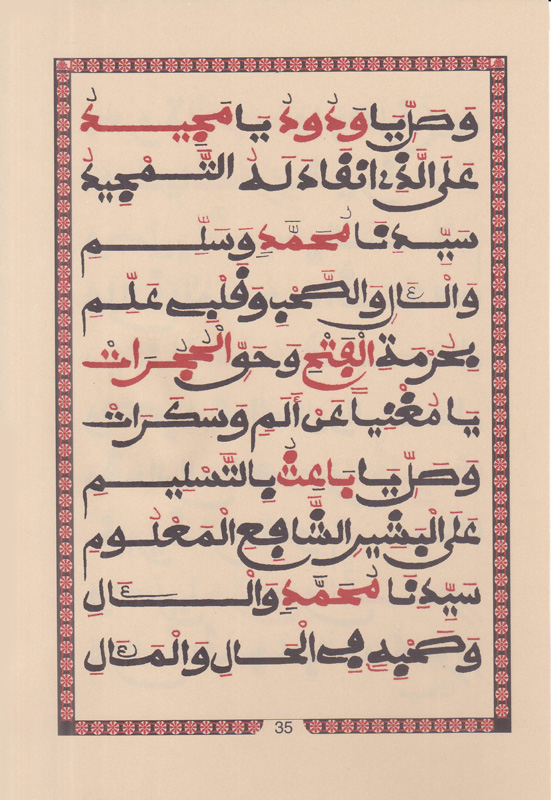 وَصَلِّ يَا وَدُودُ يَا مَجِيدُ
عَلَى الَّذِي انْقَادَ لَهُ التَّمْجِيدُ
سَيِّدِنَا مُحَمَّدٍ وَسَلِّمِ
وَالْآلِ وَالصَّحْبِ وَقَلْبِي عَلِّمِ
بِحُرْمَةِ الْفَتْحِ وَحَقِّ الْحُجُرَاتْ
يَا مُغْنِياً عَنْ أَلَمٍ وَسَكَرَاتْ
وَصَلِّ يَا بَاعِثُ بِالتَّسْلِيمِ
عَلَى الْبَشِيرِ الشَّافِعِ الْمَعْلُومِ
سَيِّدِنَا مُحَمَّدٍ وَالْآلِ
وَصَحْبِهِ فِي الْحَالِ وَالْمَآلِ
35